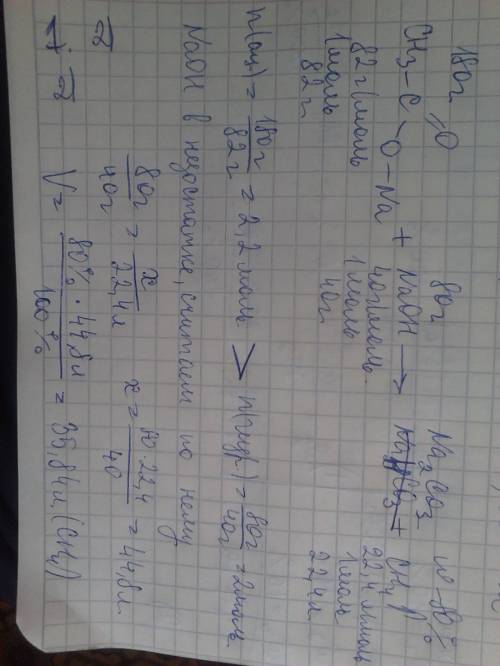 180г 80г w-80%
CH₃-C=O-O-Na + NaOH → Na₂CO₃ + CH₄↑
82г/моль 40г/моль 22,4л/моль
1моль 1моль 1моль
82г 40г 22,4л
n(ац.) = 180г/82г = 2,2моль > n(гидр.) = 80г/40г = 2моль
NaOH в недостатке, считаем по нему
80г/40г = x/22,4л x = 80·22,4/40 = 44,8л
V = 80%·44,8л/100% = 35,84л (CH₄)